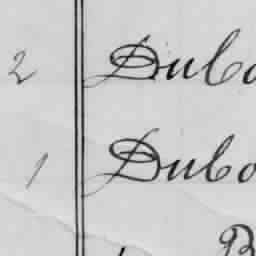 2 Dubo
1 Dubo
B